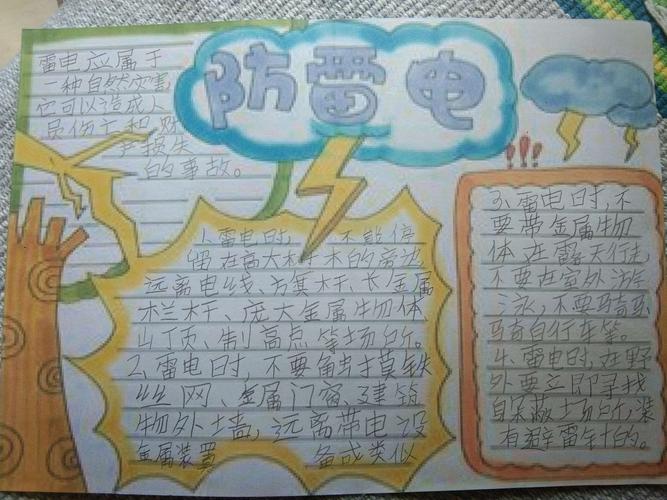 防雷电
雷电应属于
一种自然灾害,
它可以造成人
员伤亡和财
产损失
的事故。
1、雷电时,不能停
留在高大树木的旁边
远离电线、旗杆、长金属
栏杆、庞大金属物体
山顶、制高点等场所。
2、雷电时,不要触摸铁
丝网、金属门窗、建筑
物外墙,远离带电设
金属装置 备或类似
3、雷电时,不
要带金属物
体在露天行走,
不要在室外游
泳,不要骑马
骑自行车等。
4、雷电时,在野
外要立即寻找
自蔽场所,装
有避雷针的。